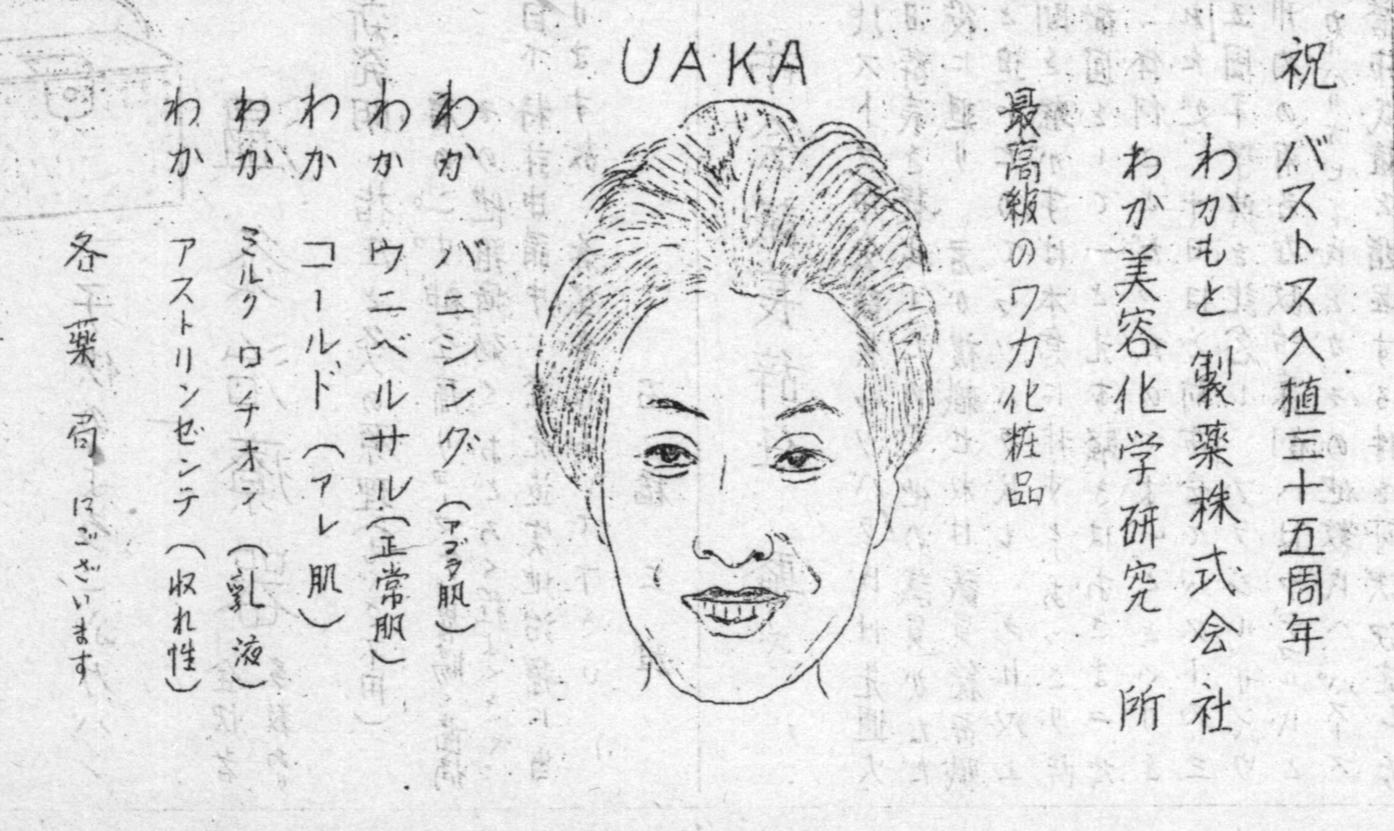 祝 バストス入植三十五周年
わかもと製薬株式会社
わか美容化学研究所
最高級のワカ化粧品
UAKA
わか バニシング (アブラ肌)
わか ウニベルサル (正常肌)
わか コールド (アレ肌)
わか ミルクロンチオン (乳液)
わか アストリンゼンテ (収れ性)
各薬局にございます